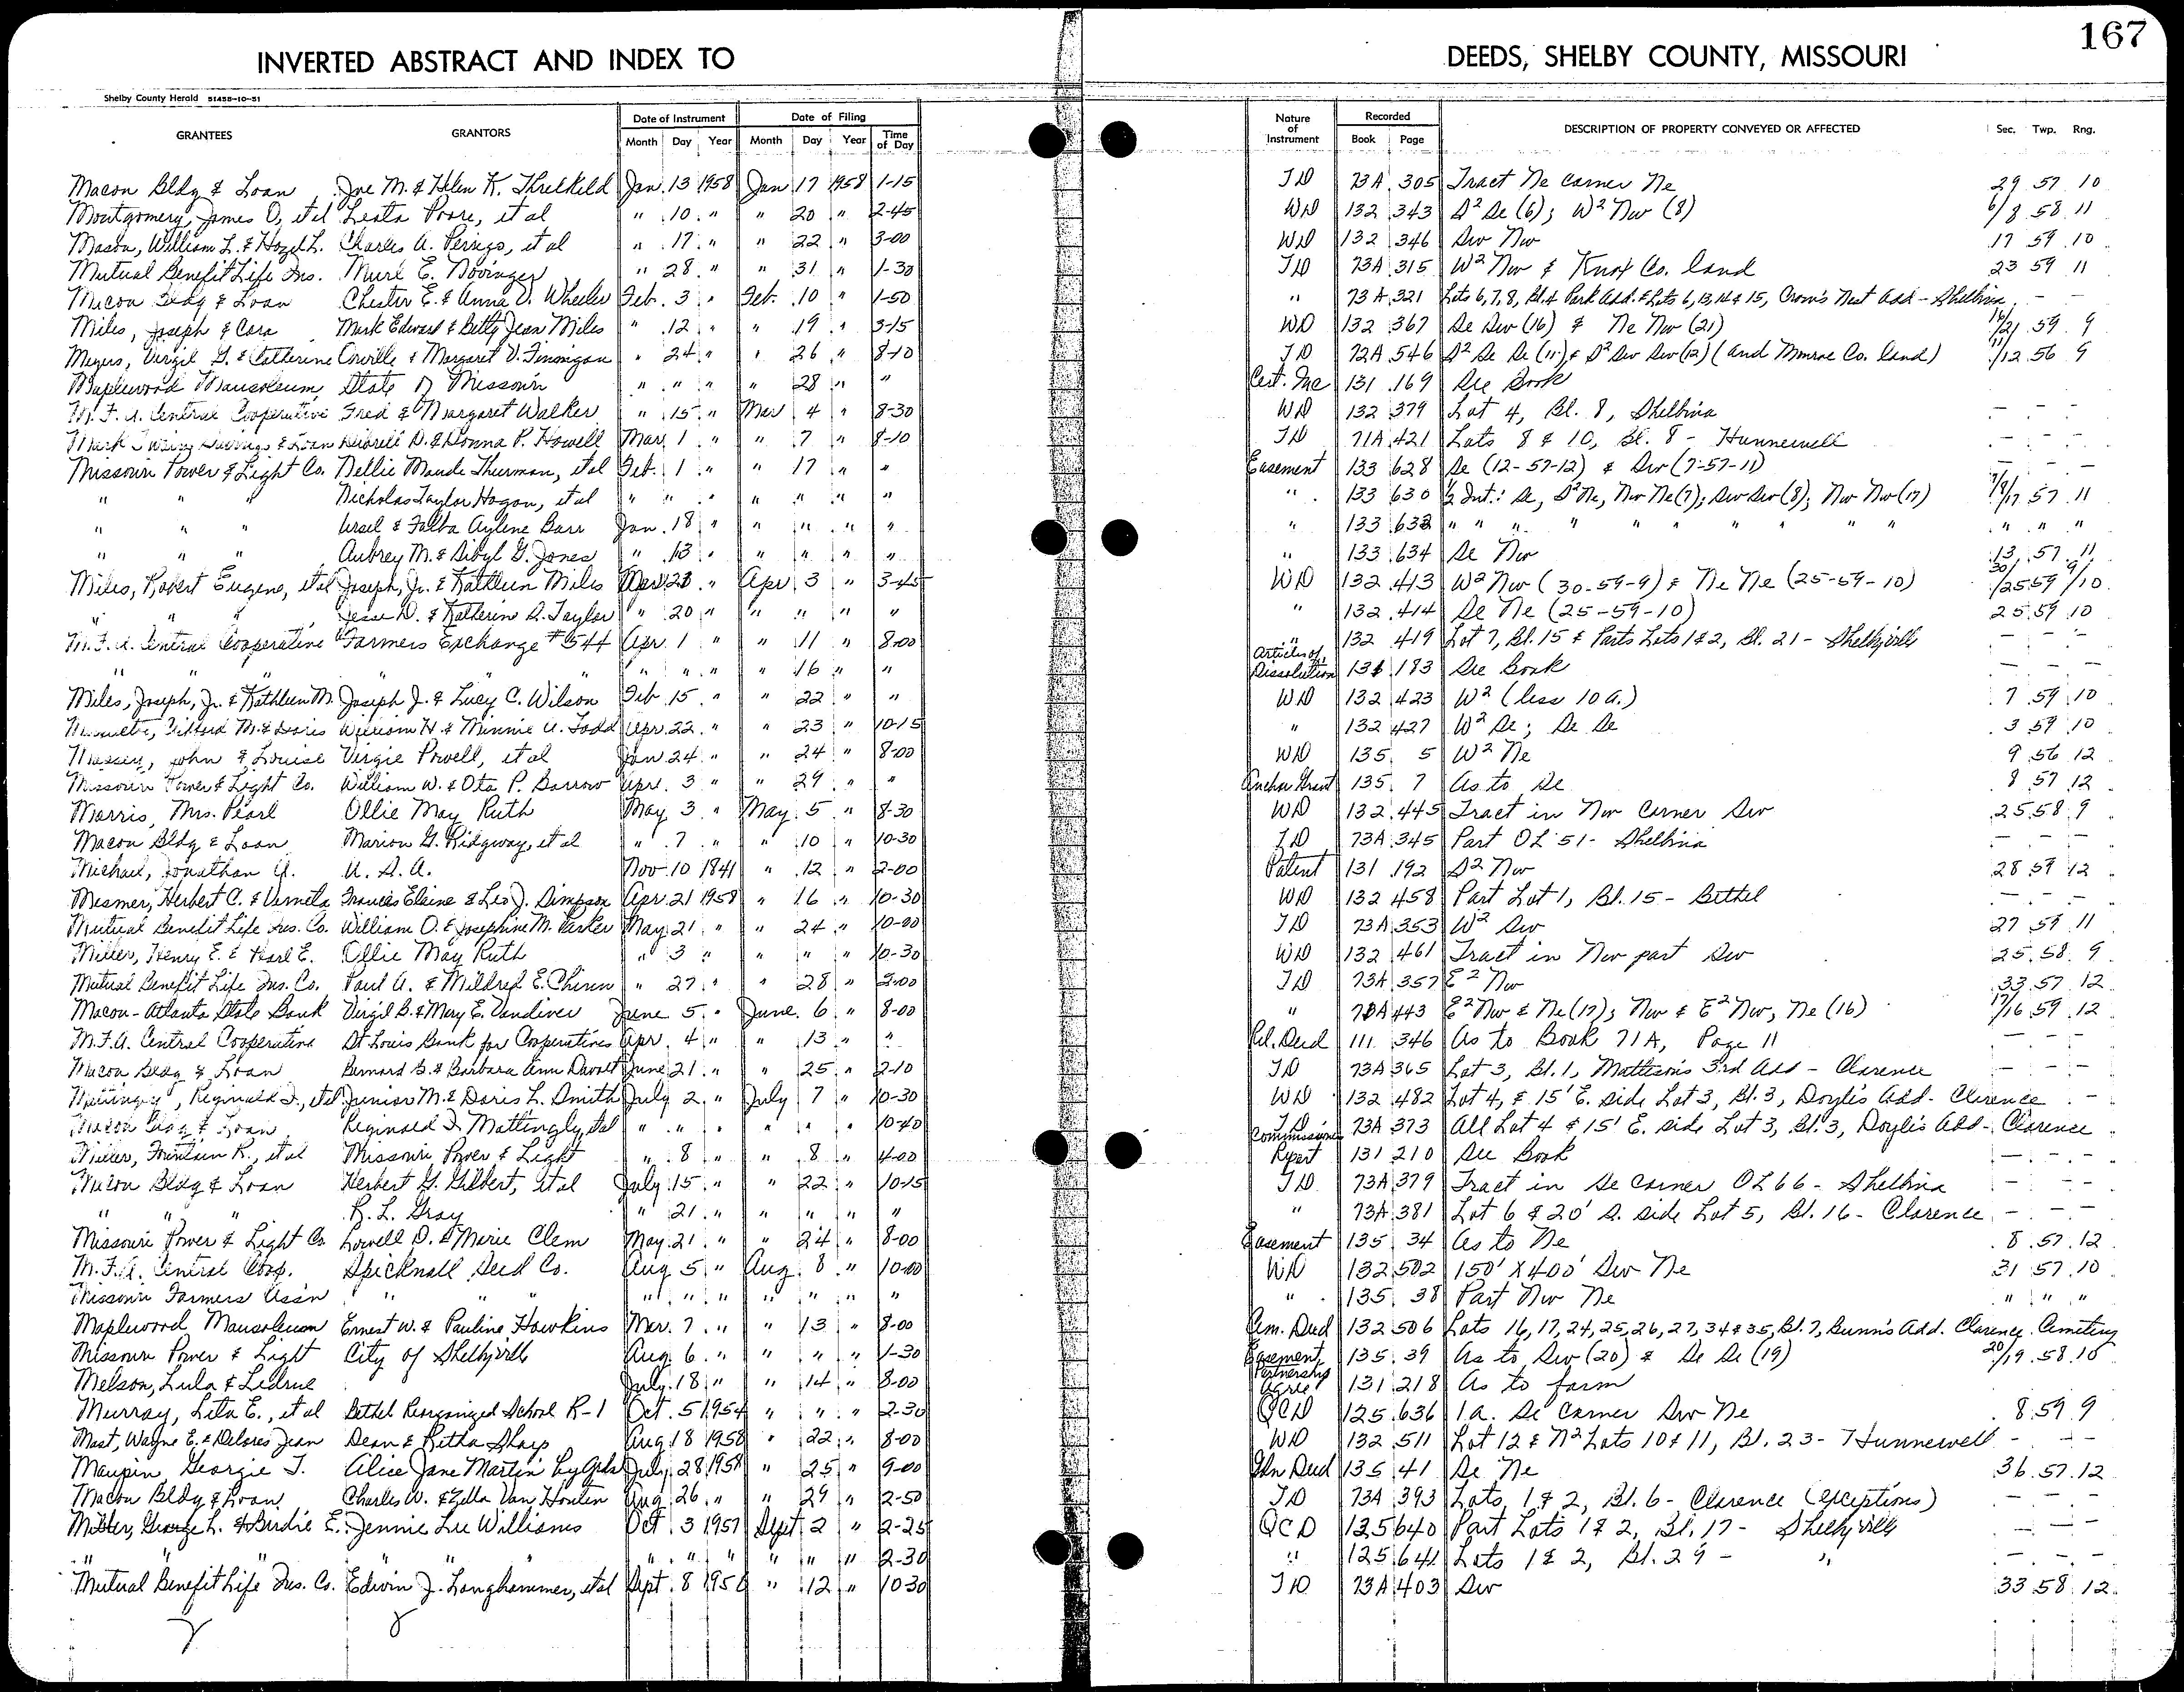 167
INVERTED ABSTRACT AND INDEX TO DEEDS, SHELBY COUNTY, MISSOURI
Shelby County Herald 51458-10-51
GRANTEES GRANTORS Date of Instrument Date of Filing Nature of Instrument Recorded DESCRIPTION OF PROPERTY CONVEYED OR AFFECTED Sec. Twp. Rng.
Month Day Year Month Day Year Time of Day Book Page
Macon Bldg & Loan Joe M. & Helen K. Threlkeld Jan. 13 1958 Jan 17 1958 1-15 TD 73A 305 Tract Ne corner Ne 29 57 10
Montgomery, James O, et al Leata Poore, et al " 10 " " 20 " 2-45 WD 132 343 S² Se (6); W² Nw (8) 6/8 58 11
Mason, William L. & Hazel L. Charles A. Perrigo, et al " 17 " " 22 " 3-00 WD 132 346 Sw Nw 17 59 10
Mutual Benefit Life Ins. Murl E. Novinger " 28 " " 31 " 1-30 TD 73A 315 W² Nw & Knox Co. land 23 59 11
Macon Bldg & Loan Chester E. & Anna V. Wheeler Feb. 3 " Feb. 10 " 1-50 " 73A 321 Lots 6, 7, 8, Bl. 4 Park Add. & Lots 6, 13, 14 & 15, Crow's Nest Add - Shelbina - -
Miles, Joseph & Cora Mark Edward & Betty Jean Miles " 12 " " 19 " 3-15 WD 132 367 Se Sw (16) & Ne Nw (21) 16/21 59 9
Meyers, Virgil G. & Catherine Orville & Margaret V. Finnigan " 24 " " 26 " 8-10 TD 72A 546 S² Se Se (11) & S² Sw Sw (12) (and Monroe Co. land) 11/12 56 9
Maplewood Mausoleum State of Missouri " " " " 28 " " Cert. Inc 131 169 See Book
M.F.A. Central Cooperative Fred & Margaret Walker " 15 " Mar 4 " 8-30 WD 132 379 Lot 4, Bl. 8, Shelbina - - -
Mark Twain Savings & Loan D. & Donna P. Howell Mar. 1 " " 7 " 8-10 TD 71A 421 Lots 8 & 10, Bl. 8 - Hunnewell - - -
Missouri Power & Light Co. Nellie Maude Thurman, et al Feb. 1 " " 17 " " Easement 133 628 Se (12-57-12) & Sw (7-57-11) - - -
" " " Nicholas Taylor Hogan, et al " " " " " " " " 133 630 ½ Int.: Se, S² Ne, Nw Ne (7); Sw Sw (8); Nw Nw (17) 7/8/17 57 11
" " " Ursel & Falba Aylene Barr Jan. 18 " " " " " " 133 632 " " " " " " " " " " " "
" " " Aubrey M. & Sibyl G. Jones " 13 " " " " " " 133 634 Se Nw 13 57 11
Miles, Robert Eugene, et al Joseph, Jr. & Kathleen Miles Mar. 20 " Apr 3 " 3-45 WD 132 413 W² Nw (30-59-9) & Ne Ne (25-59-10) 30/25 59 9/10
" " Jesse D. & Katherine A. Taylor " 20 " " " " " " 132 414 Se Ne (25-59-10) 25 59 10
M.F.A. Central Cooperative Farmers Exchange #544 Apr. 1 " " 11 " 8-00 " 132 419 Lot 7, Bl. 15 & Parts Lots 1 & 2, Bl. 21 - Shelbyville - - -
" " " " " " " 16 " " Articles of Dissolution 131 183 See Book - - -
Miles, Joseph, Jr. & Kathleen M. Joseph J. & Lucy C. Wilson Feb 15 " " 22 " " WD 132 423 W² (less 10 a.) 7 59 10
M. & Doris William H. & Minnie A. Todd Apr. 22 " " 23 " 10-15 " 132 427 W² Se; Se Se 3 59 10
Massey, John & Louise Virgie Powell, et al Jan 24 " " 24 " 8-00 WD 135 5 W² Ne 9 56 12
Missouri Power & Light Co. William W. & Ota P. Barrow Apr. 3 " " 29 " " Anchor Grant 135 7 As to Se 8 57 12
Morris, Mrs. Pearl Ollie May Ruth May 3 " May 5 " 8-30 WD 132 445 Tract in Nw Corner Sw 25 58 9
Macon Bldg & Loan Marion G. Ridgway, et al " 7 " " 10 " 10-30 TD 73A 345 Part OL 51 - Shelbina - - -
Michael, Jonathan U. S. A. Nov. 10 1841 " 12 " 2-00 Patent 131 192 S² Nw 28 59 12
Mesmer, Herbert C. & Verneta Frances Elaine & Leo J. Simpson Apr. 21 1958 " 16 " 10-30 WD 132 458 Part Lot 1, Bl. 15 - Bethel - - -
Mutual Benefit Life Ins. Co. William O. & Josephine M. Parker May 21 " " 24 " 10-00 TD 73A 353 W² Sw 27 59 11
Miller, Henry E. & Pearl E. Ollie May Ruth " 3 " " " " 10-30 WD 132 461 Tract in Nw part Sw 25 58 9
Mutual Benefit Life Ins. Co. Paul A. & Mildred E. Chinn " 27 " " 28 " 3-00 TD 73A 357 E² Nw 33 57 12
Macon-Atlanta State Bank Virgil B. & Mary E. Vandiver June 5 " June 6 " 8-00 " 443 E² Nw & Ne (17); Nw & E² Nw, Ne (16) 17/16 59 12
M.F.A. Central Cooperative St Louis Bank for Cooperatives Apr. 4 " " 13 " " Rel. Deed 111 346 As to Book 71A, Page 11 - - -
Macon Bldg & Loan Bernard G. & Barbara Ann Davolt June 21 " " 25 " 2-10 TD 73A 365 Lot 3, Bl. 1, Mattison's 3rd Add - Clarence - - -
Mattingly, Reginald I., et al Junior M. & Doris L. Smith July 2 " July 7 " 10-30 WD 132 482 Lot 4, & 15' E. side Lot 3, Bl. 3, Doyle's Add. Clarence - -
Macon Bldg & Loan Reginald I. Mattingly, et al " " " " " " 10-40 TD 73A 373 All Lot 4 & 15' E. side Lot 3, Bl. 3, Doyle's Add - Clarence
Miller, Fountain R., et al Missouri Power & Light " 8 " " 8 " 4-00 Commissioners Report 131 210 See Book - - -
Macon Bldg & Loan Herbert G. Gilbert, et al July 15 " " 22 " 10-15 TD 73A 379 Tract in Se Corner OL 66 - Shelbina - - -
" " " R. L. Gray " 21 " " " " " " 73A 381 Lot 6 & 20' S. side Lot 5, Bl. 16 - Clarence - - -
Missouri Power & Light Co. Lowell D. & Marie Clem May 21 " " 24 " 8-00 Easement 135 34 As to Ne 8 57 12
M.F.A. Central Coop. Spicknall Seed Co. Aug 5 " Aug. 8 " 10-00 WD 132 502 150' X 400' Sw Ne 31 57 10
Missouri Farmers Ass'n " " " " " " " " " " " 135 38 Part Nw Ne " " "
Maplewood Mausoleum Ernest W. & Pauline Hawkins Mar. 7 " " 13 " 8-00 Cem. Deed 132 506 Lots 16, 17, 24, 25, 26, 27, 34 & 35, Bl. 7, Bunn's Add. Clarence Cemetery
Missouri Power & Light City of Shelbyville Aug. 6 " " " " 1-30 Easement 135 39 As to Sw (20) & Se Se (19) 20/19 58 10
Melson, Lula & Ledrue July 18 " " 14 " 8-00 Partnership Agree 131 218 As to farm
Murray, Leta E., et al Bethel Reorganized School R-1 Oct. 5 1954 " " " 2-30 QCD 125 636 1 a. Se Corner Sw Ne 8 59 9
Mast, Wayne E. & Delores Jean Dean & Retha Sharp Aug 18 1958 " 22 " 8-00 WD 132 511 Lot 12 & N² Lots 10 & 11, Bl. 23 - Hunnewell - - -
Maupin, Georgie T. Alice Jane Martin by Gdn July 28 1958 " 25 " 9-00 Gdn Deed 135 41 Se Ne 36 57 12
Macon Bldg & Loan Charles W. & Zella Van Houten Aug. 26 " " 29 " 2-50 TD 73A 393 Lots 1 & 2, Bl. 6 - Clarence (exceptions) - - -
Miller, George L. & Birdie E. Jennie Lee Williams Oct. 3 1957 Sept 2 " 2-25 QCD 125 640 Part Lots 1 & 2, Bl. 17 - Shelbyville - - -
" " " " " " " " " " 2-30 " 125 641 Lots 1 & 2, Bl. 29 - " - - -
Mutual Benefit Life Ins. Co. Edwin J. Langhammer, et al Sept. 8 195 " 12 " 10-30 TD 73A 403 Sw 33 58 12